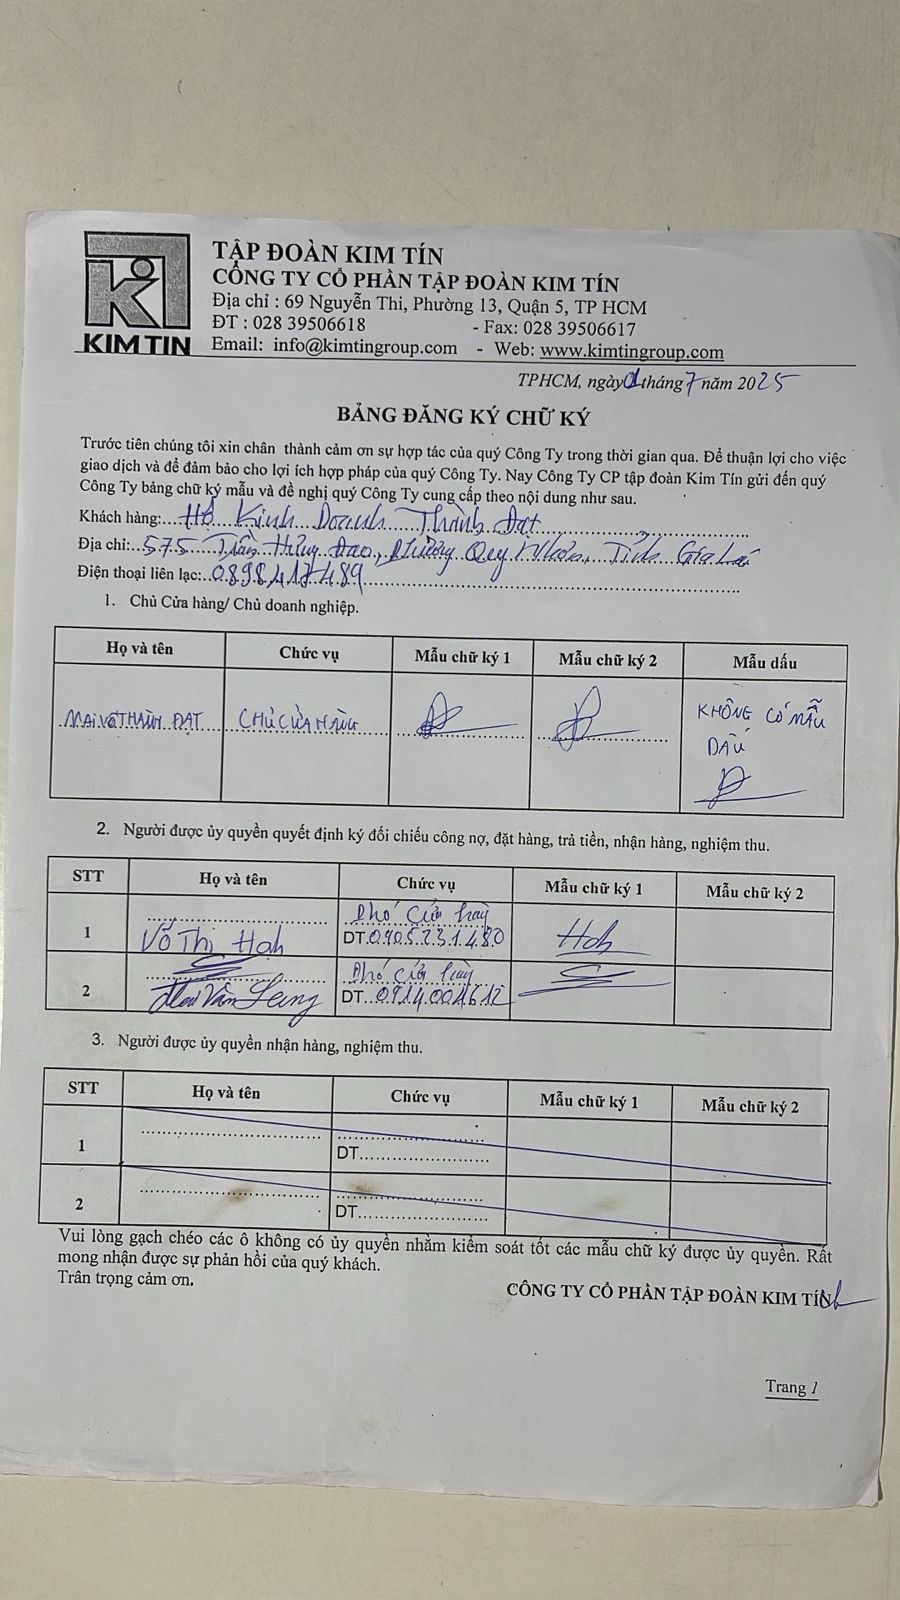 TẬP ĐOÀN KIM TÍN
CÔNG TY CỔ PHẦN TẬP ĐOÀN KIM TÍN
Địa chỉ : 69 Nguyễn Thi, Phường 13, Quận 5, TP HCM
ĐT : 028 39506618 - Fax: 028 39506617
KIM TIN Email: info@kimtingroup.com - Web: www.kimtingroup.com
TPHCM, ngày 01 tháng 7 năm 2025
BẢNG ĐĂNG KÝ CHỮ KÝ
Trước tiên chúng tôi xin chân thành cảm ơn sự hợp tác của quý Công Ty trong thời gian qua. Để thuận lợi cho việc
giao dịch và để đảm bảo cho lợi ích hợp pháp của quý Công Ty. Nay Công Ty CP tập đoàn Kim Tín gửi đến quý
Công Ty bảng chữ ký mẫu và đề nghị quý Công Ty cung cấp theo nội dung như sau.
Khách hàng:....Hộ Kinh Doanh Thành Đạt
Địa chỉ:..575 Trần Hưng Đạo, Phường Quy Nhơn, Tỉnh Gia Lai
Điện thoại liên lạc:..0898.417.489
1. Chủ Cửa hàng/ Chủ doanh nghiệp.
Họ và tên Chức vụ Mẫu chữ ký 1 Mẫu chữ ký 2 Mẫu dấu
MAI VÕ THÀNH ĐẠT CHỦ CỬA HÀNG KHÔNG CÓ MẪU
DẤU
2. Người được ủy quyền quyết định ký đối chiếu công nợ, đặt hàng, trả tiền, nhận hàng, nghiệm thu.
STT Họ và tên Chức vụ Mẫu chữ ký 1 Mẫu chữ ký 2
Phó cửa hàng
1 Võ Thị Hạh DT.0905.231.480 Hah
Phó cửa hàng
2 Văn DT..0914.004.612
3. Người được ủy quyền nhận hàng, nghiệm thu.
STT Họ và tên Chức vụ Mẫu chữ ký 1 Mẫu chữ ký 2
1 DT........................
2 DT........................
Vui lòng gạch chéo các ô không có ủy quyền nhằm kiểm soát tốt các mẫu chữ ký được ủy quyền. Rất
mong nhận được sự phản hồi của quý khách.
Trân trọng cảm ơn.
CÔNG TY CỔ PHẦN TẬP ĐOÀN KIM TÍN
Trang 1